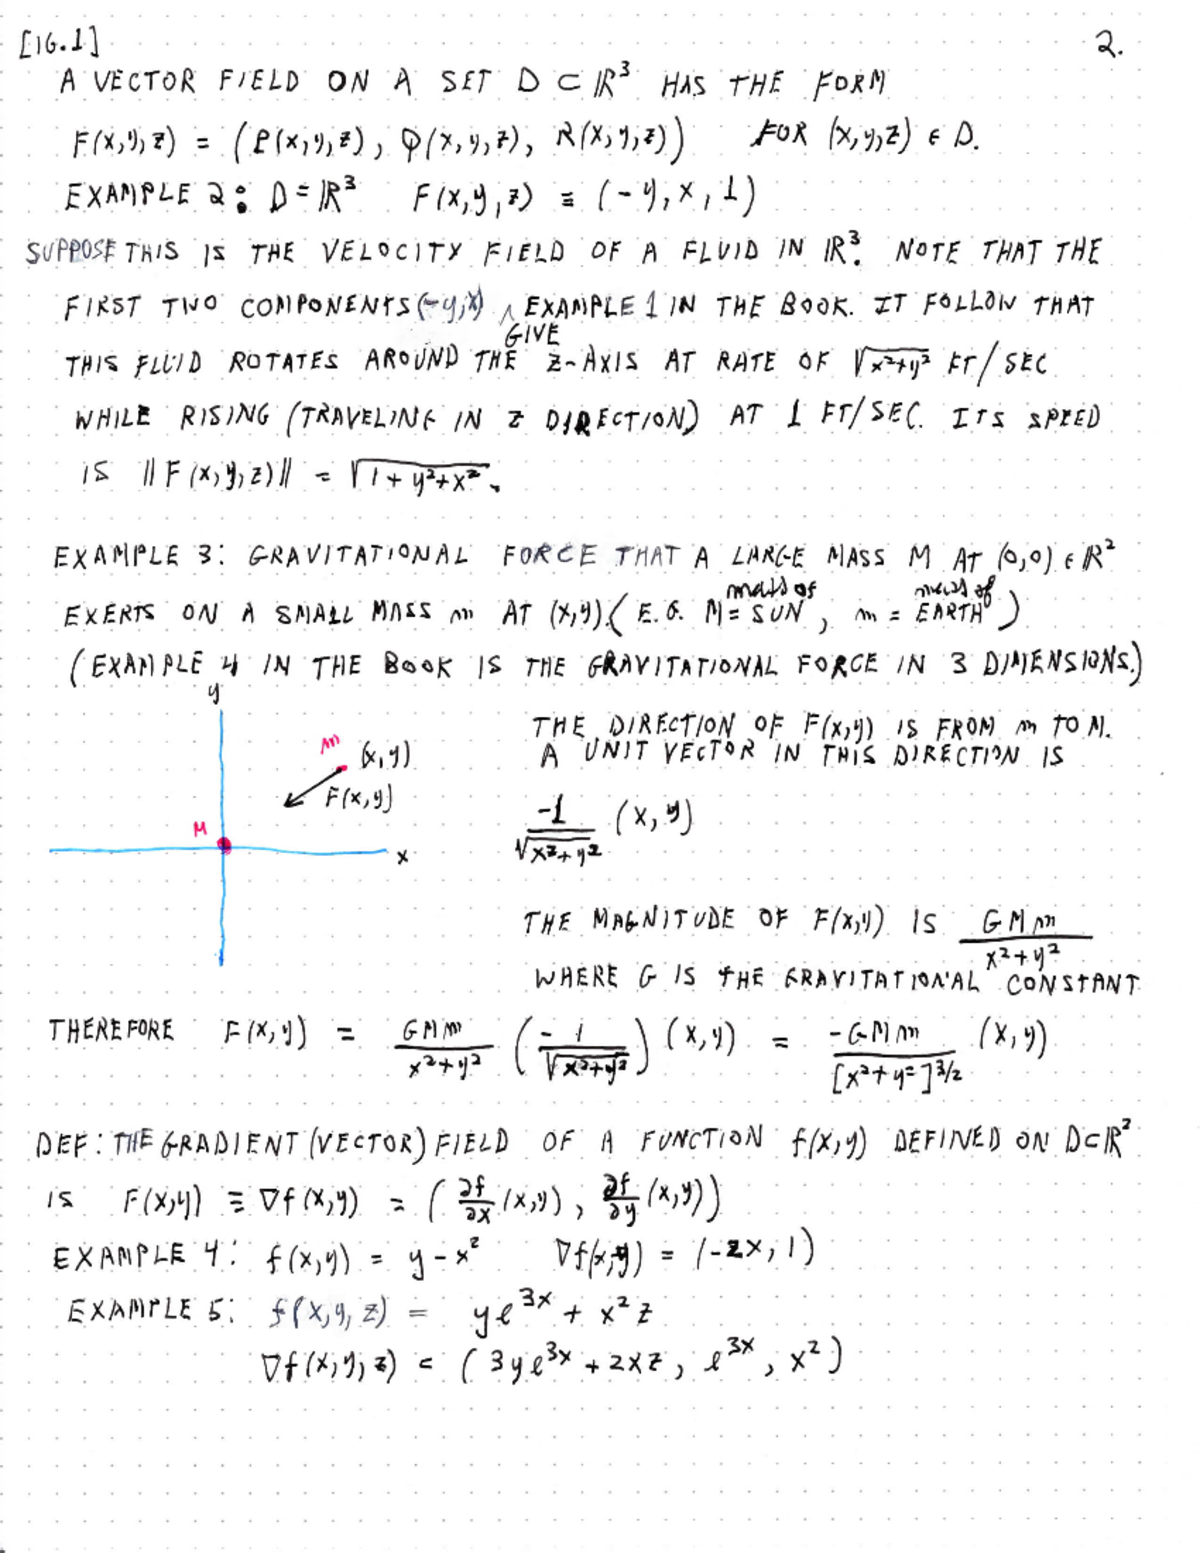 [16.1] 2.
A VECTOR FIELD ON A SET D ⊂ ℝ³ HAS THE FORM
F(x,y,z) = (P(x,y,z), Q(x,y,z), R(x,y,z)) FOR (x,y,z) ∈ D.
EXAMPLE 2: D = ℝ³ F(x,y,z) = (-y, x, 1)
SUPPOSE THIS IS THE VELOCITY FIELD OF A FLUID IN ℝ³. NOTE THAT THE
FIRST TWO COMPONENTS (-y,x) ^ EXAMPLE 1 IN THE BOOK. IT FOLLOW THAT
GIVE
THIS FLUID ROTATES AROUND THE z-AXIS AT RATE OF √(x²+y²) FT/SEC
WHILE RISING (TRAVELING IN z DIRECTION) AT 1 FT/SEC. ITS SPEED
IS ||F(x,y,z)|| = √(1+y²+x²).
EXAMPLE 3: GRAVITATIONAL FORCE THAT A LARGE MASS M AT (0,0) ∈ ℝ²
mass of mass of
EXERTS ON A SMALL MASS m AT (x,y). (E.G. M = SUN, m = EARTH)
(EXAMPLE 4 IN THE BOOK IS THE GRAVITATIONAL FORCE IN 3 DIMENSIONS.)
y
m (x,y)
F(x,y)
M
x
THE DIRECTION OF F(x,y) IS FROM m TO M.
A UNIT VECTOR IN THIS DIRECTION IS
-1/√(x²+y²) (x,y)
THE MAGNITUDE OF F(x,y) IS GMm/(x²+y²)
WHERE G IS THE GRAVITATIONAL CONSTANT
THEREFORE F(x,y) = GMm/(x²+y²) (-1/√(x²+y²)) (x,y) = -GMm/[x²+y²]^(3/2) (x,y)
DEF: THE GRADIENT (VECTOR) FIELD OF A FUNCTION f(x,y) DEFINED ON D⊂ℝ²
IS F(x,y) ≡ ∇f(x,y) = (∂f/∂x (x,y), ∂f/∂y (x,y))
EXAMPLE 4: f(x,y) = y - x² ∇f(x,y) = (-2x, 1)
EXAMPLE 5: f(x,y,z) = ye^(3x) + x²z
∇f(x,y,z) = (3ye^(3x) + 2xz, e^(3x), x²)